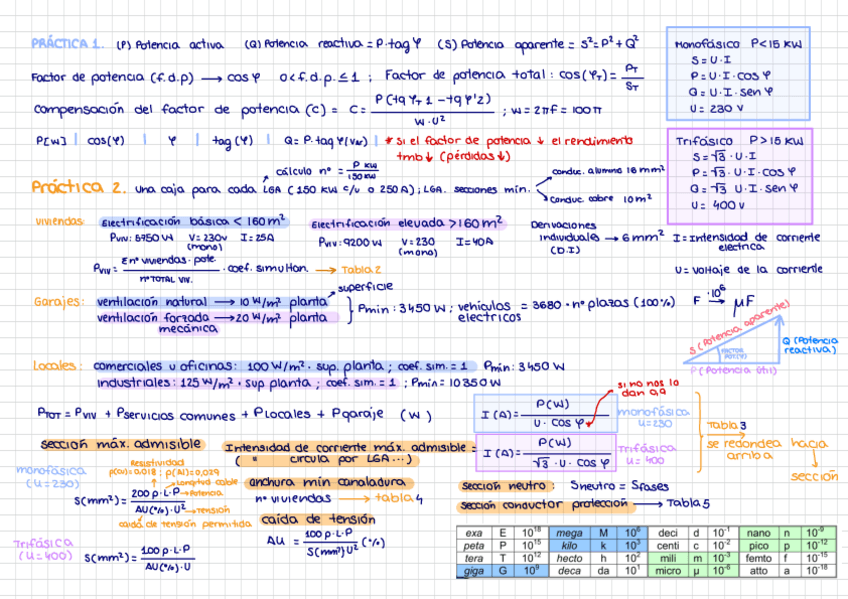 PRÁCTICA 1. (P) Potencia activa (Q) Potencia reactiva = P·tag φ (S) Potencia aparente = S² = P² + Q²
Factor de potencia (f.d.p) → cos φ 0 < f.d.p. ≤ 1 ; Factor de potencia total : cos(φT) = PT / ST
Compensación del factor de potencia (C) = C = P(tg φ1 - tg φ'2) / W·U² ; w = 2πf = 100π
P[W] | cos(φ) | φ | tag(φ) | Q = P.tag φ(Var) | * si el factor de potencia ↓ el rendimiento
tmb↓ (pérdidas↓)
Monofásico P<15 KW
S = U·I
P = U·I·cos φ
Q = U·I·sen φ
U = 230 V
Trifásico P>15 KW
S = √3·U·I
P = √3·U·I·cos φ
Q = √3 U·I·sen φ
U = 400 V
cálculo nº = P KW / 150 KW
Práctica 2. Una caja para cada LGA (150 KW c/u o 250 A); LGA. secciones mín.
conduc. aluminio 16 mm²
conduc. cobre 10 m²
viviendas: Electrificación básica < 160 m² Electrificación elevada > 160 m²
PVIV: 5750 W V = 230v (mono) I = 25A
PVIV: 9200 W V = 230 (mono) I = 40A
Derivaciones individuales → 6 mm² (D.I)
I = Intensidad de corriente electrica
U = Voltaje de la corriente
PVIV = Σ nº viviendas · pote. / nº TOTAL VIV. · coef. simultan. → Tabla 2
superficie
Garajes: ventilación natural → 10 W/m² planta
ventilación forzada → 20 W/m² planta
mecánica
Pmin : 3450 W ; vehículos electricos = 3680 · nº plazas (100%)
F ·10⁶→ μF
S (Potencia aparente)
Q (Potencia reactiva)
FACTOR POT(φ)
P (Potencia útil)
Locales: comerciales u oficinas: 100 W/m² · sup. planta ; coef. sim. = 1 Pmin: 3450 W
industriales: 125 W/m² · sup planta ; coef. sim. = 1 ; Pmin = 10350 W
PTOT = PVIV + Pservicios comunes + PLocales + Pgaraje (W)
si no nos lo dan 0,9
I (A) = P(W) / U · cos φ
monofásica U=230
I (A) = P(W) / √3 · U · cos φ
Trifásica U= 400
Tabla 3
se redondea hacia arriba
sección
sección máx. admisible
Resistividad
ρ(Cu)=0,018 ; ρ(Al)=0,029
monofásica (U=230)
Longitud cable
S(mm²) = 200 ρ·L·P / ΔU(%)·U²
Potencia
TENSIÓN
caída de tensión permitida
Trifásica (U=400)
S(mm²) = 100 ρ·L·P / ΔU(%)·U
Intensidad de corriente máx. admisible =
( " circula por LGA...)
anchura min canaladura
nº viviendas → tabla 4
caída de tensión
ΔU = 100 ρ·L·P / S(mm²)U² (%)
sección neutro : Sneutro = Sfases
sección conductor protección → Tabla 5
exa E 10¹⁸ mega M 10⁶ deci d 10⁻¹ nano n 10⁻⁹
peta P 10¹⁵ kilo k 10³ centi c 10⁻² pico p 10⁻¹²
tera T 10¹² hecto h 10² mili m 10⁻³ femto f 10⁻¹⁵
giga G 10⁹ deca da 10¹ micro μ 10⁻⁶ atto a 10⁻¹⁸